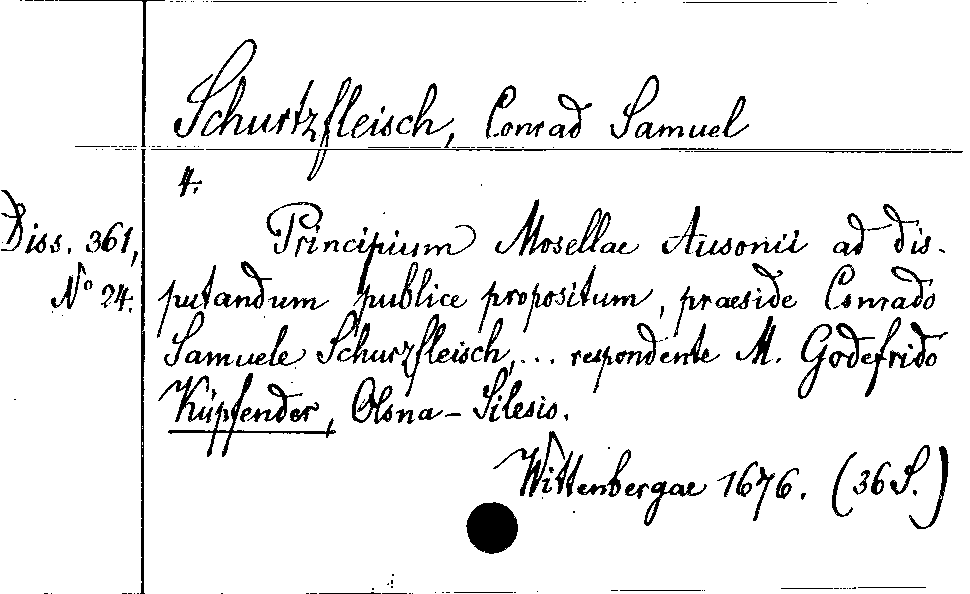 Schurtzfleisch, Conrad Samuel
4.
Diss. 361,
No 24.
Principium Mosellae Ausonii ad dis-
putandum publice propositum, praeside Conrado
Samuele Schurzfleisch,... respondente M. Godefrido
Küpfender, Olsna-Silesio.
Wittenbergae 1676. (36 S.)